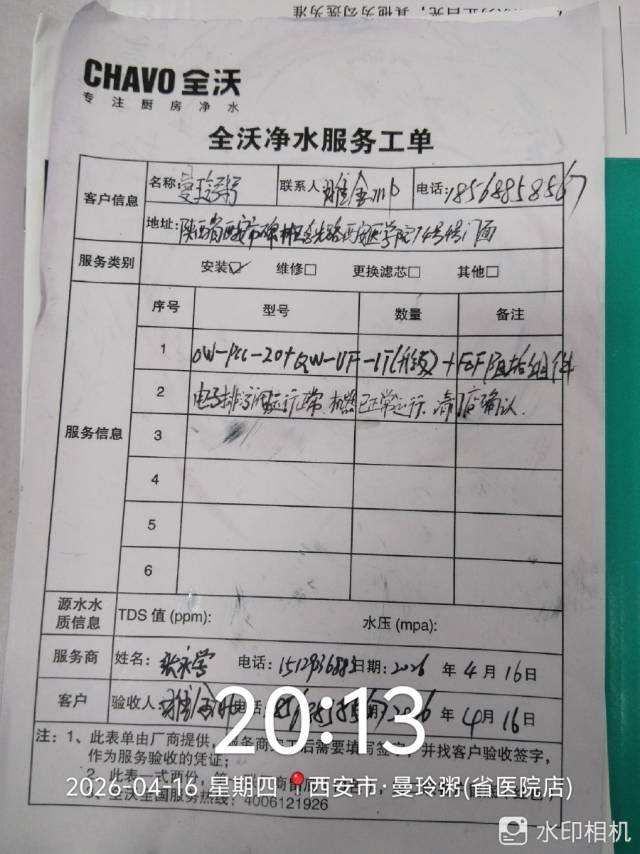 其他为勾选为准
CHAVO 全沃
专注厨房净水
全沃净水服务工单
客户信息
名称: 曼玲粥
联系人
电话: 18568858567
地址: 陕西省西安市碑林区 路西安医学院14号楼门面
服务类别
安装☑ 维修□ 更换滤芯□ 其他□
服务信息
序号 型号 数量 备注
1 QW-PCC-20+QW-UF-1T(升级)+FOF阻垢组件
2 电子排污阀运行正常.机器已正常运行.请门店确认.
3
4
5
6
源水水质信息
TDS 值 (ppm): 水压 (mpa):
服务商
姓名: 张永学 电话: 日期: 2026 年 4 月 16 日
客户
验收人: 2026 年 4 月 16 日
20:13
注: 1、此表单由厂商提供, 服务商完工后需要填写签字, 并找客户验收签字,
作为服务验收的凭证;
2、此表一式两份,
2026-04-16 星期四 西安市·曼玲粥(省医院店)
3、全沃全国服务热线: 4006121926
水印相机